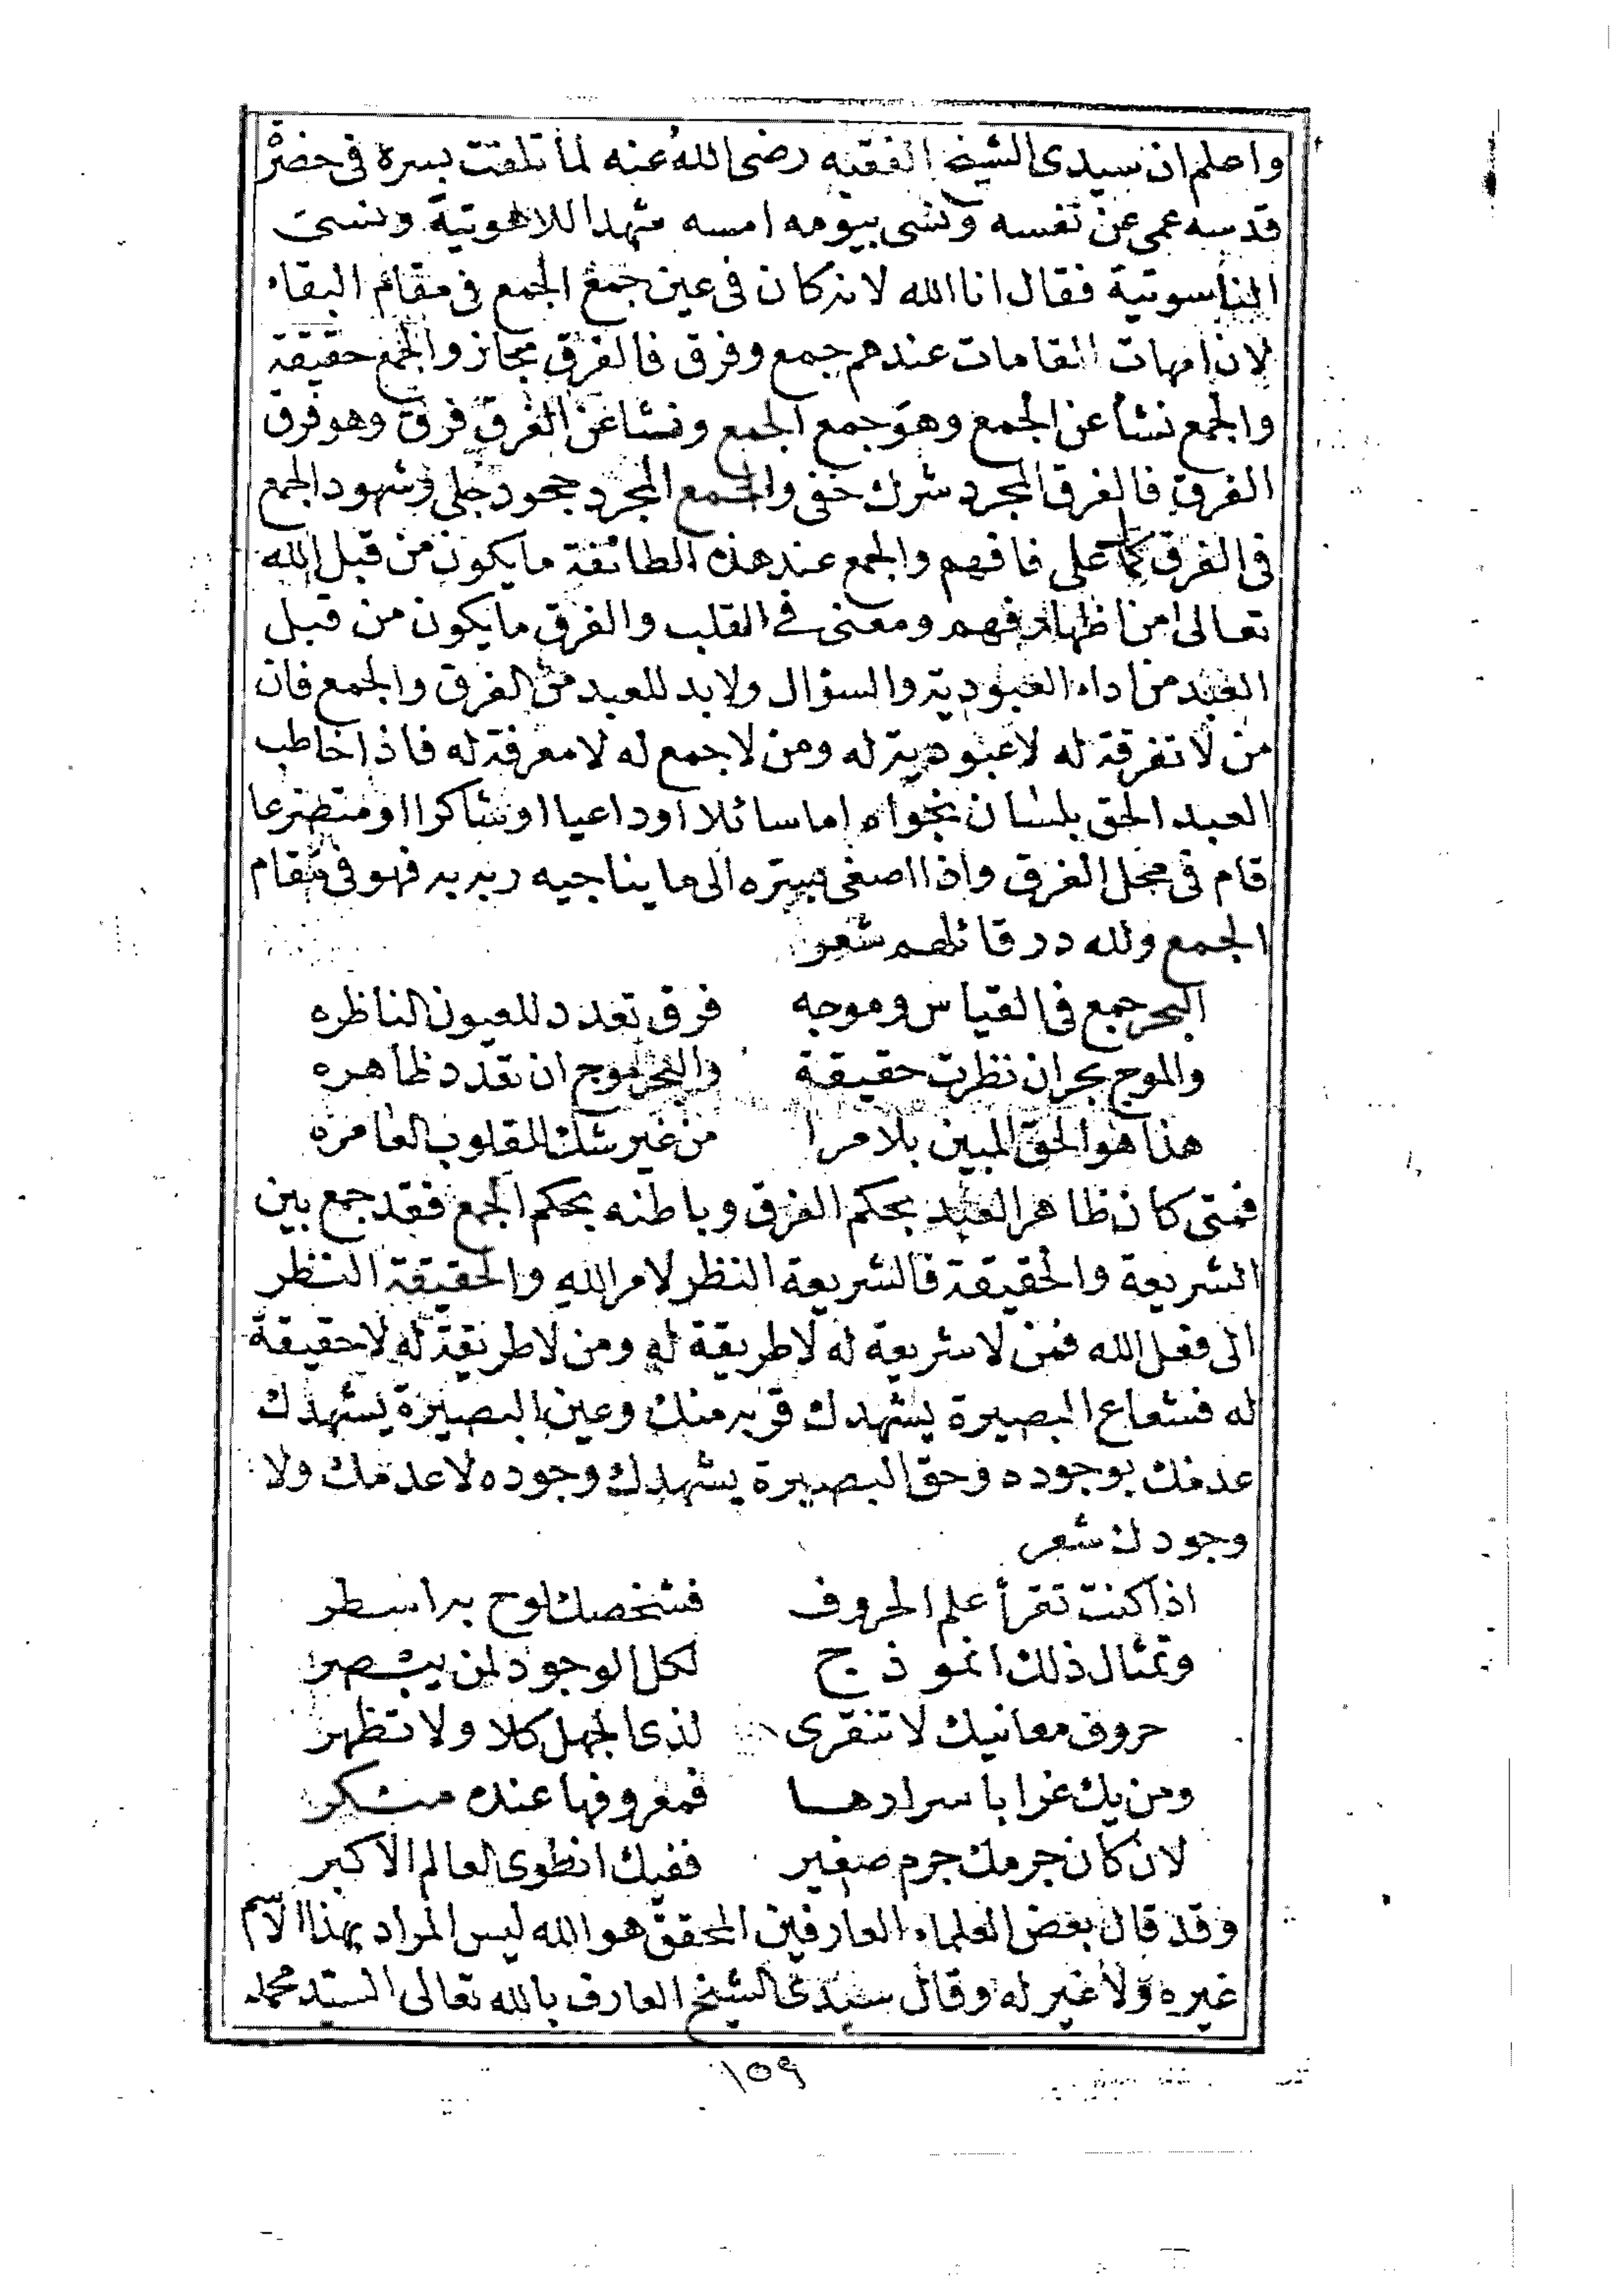 واعلم ان سيدى الشيخ الفقيه رضى الله عنه لما تلفت بسره فى حضرة
قدسه عمى عن نفسه ونسى بيومه امسه شهد اللاهوتية ونسى
الناسوتية فقال انا الله لانه كان فى عين جمع الجمع فى مقام البقاء
لان امهات المقامات عندهم جمع وفرق فالفرق مجاز والجمع حقيقة
والجمع نشأ عن الجمع وهو جمع الجمع ونشا عن الفرق فرق وهو فرق
الفرق فالفرق المجرد شرك خفى والجمع المجرد جحود جلى وشهود الجمع
فى الفرق كمال على فافهم والجمع عند هذه الطائفة ما يكون من قبل الله
تعالى من اظهار فهم ومعنى فى القلب والفرق ما يكون من قبل
العبد من اداء العبودية والسؤال ولا بد للعبد من الفرق والجمع فان
من لا تفرقة له لا عبودية له ومن لا جمع له لا معرفة له فاذا خاطب
العبد الحق بلسان نجواه اما سائلا او داعيا او شاكرا او متضرعا
قام فى محل الفرق واذا اصغى بسره الى ما يناجيه ربه به فهو فى مقام
الجمع ولله در قائلهم شعر
البحر جمع فى القياس وموجه فرق تعدد للعيون الناظره
والموج بحر ان نظرت حقيقة والبحر موج ان تعدد ظاهره
هذا هو الحق المبين بلا مرا من غير شك للقلوب العامره
فمتى كان ظاهر العبد بحكم الفرق وباطنه بحكم الجمع فقد جمع بين
الشريعة والحقيقة فالشريعة النظر لامر الله والحقيقة النظر
الى فعل الله فمن لا شريعة له لا طريقة له ومن لا طريقة له لا حقيقة
له فشعاع البصيرة يشهدك قربه منك وعين البصيرة يشهدك
عدمك بوجوده وحق البصيرة يشهدك وجوده لا عدمك ولا
وجودك شعر
اذا كنت تقرأ علم الحروف فشخصك لوح به اسطر
وتمثال ذلك انموذج لكل الوجود لمن يبصر
حروف معانيك لا تنقرى لذى الجهل كلا ولا تظهر
ومن يك غرا باسرارها فمعروفها عنده منكر
لان كان جرمك جرم صغير ففيك انطوى العالم الاكبر
وقد قال بعض العلماء العارفين المحقق هو الله ليس المراد بهذا الاسم
غيره ولا غير له وقال سيدى الشيخ العارف بالله تعالى السيد محمد
١٥٩